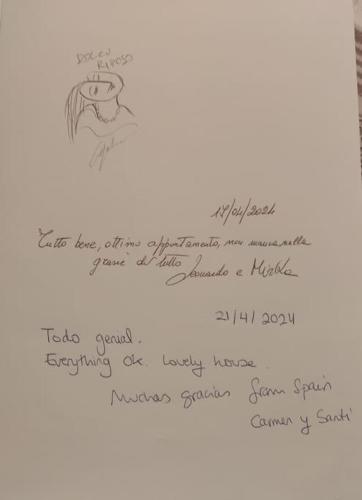 DOLCE
RIPOSO
17/04/2024
Tutto bene, ottimo appartamento, non manca nulla
grazie di tutto Leonardo e Mirka
21/4/2024
Todo genial.
Everything OK. Lovely house.
Muchas gracias from Spain
Carmen y Santi